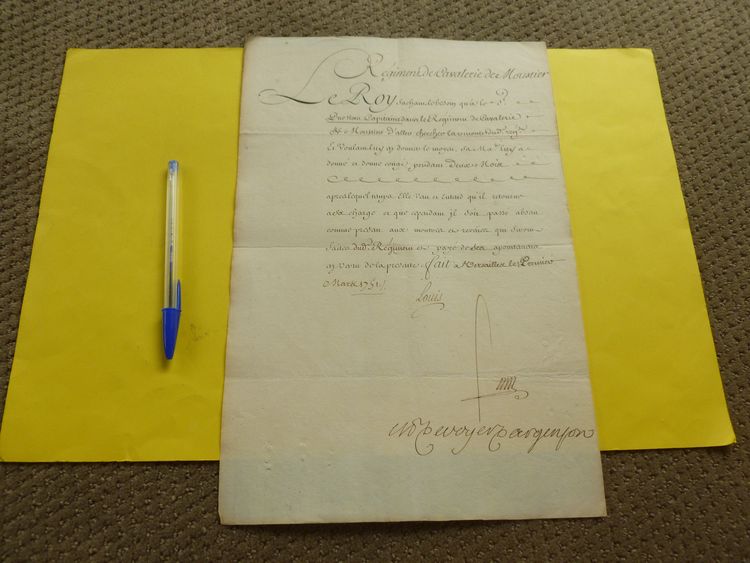 Regiment de Cavalerie de Moustier
Le Roy Sachant le besoin qu'a le S.r
Capitaine dans le Regiment de Cavalerie
de Moustier D'aller chercher la remonte dud. reg.t
Et Voulant luy donner le moyen, Sa Ma.té luy a
donné et donne congé pendant Deux Mois
apres lequel temps Elle veut et entend qu'il retourne
a sa charge et que cependant il soit passé absent
comme present aux montres et reveües qui seront
faites dud. Regiment et payé de ses apointemens
en vertu de la presente. Fait a Versailles le Premier
Mars 1751.
Louis
M P de voyer d'argenson